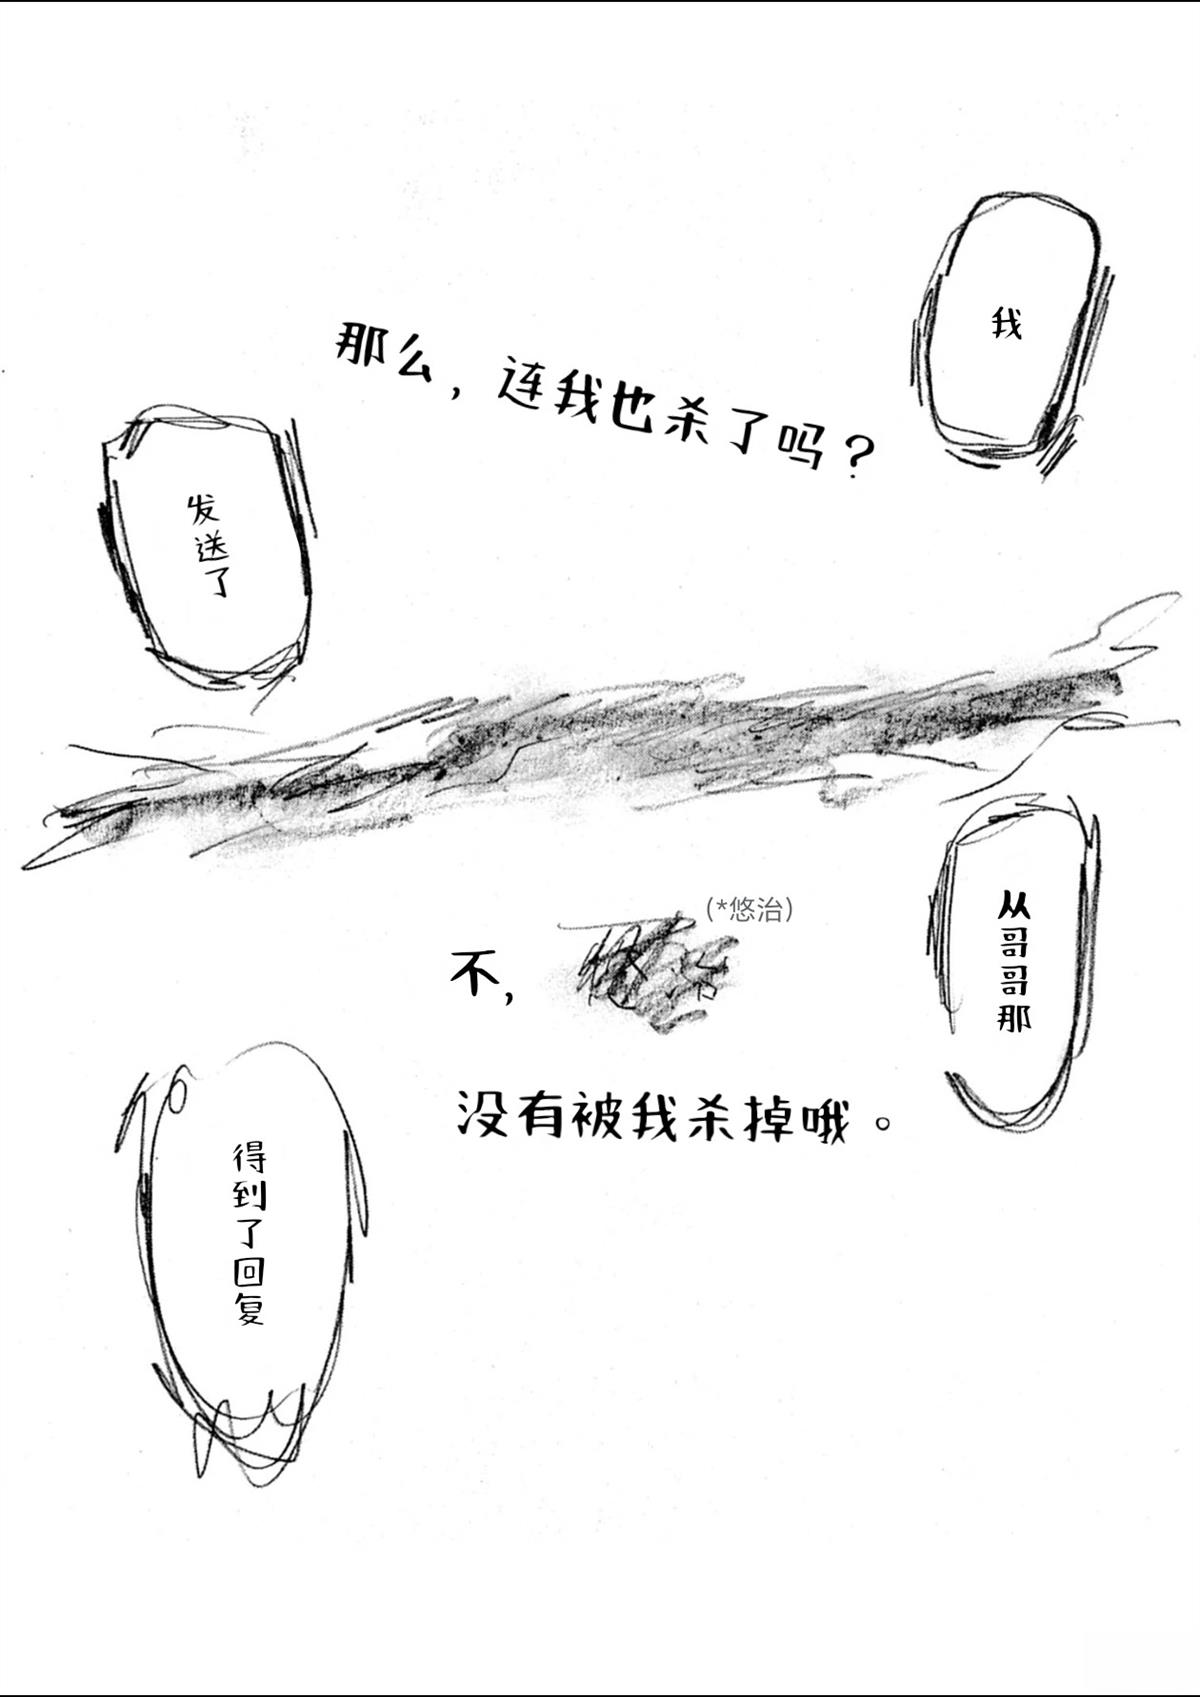 我
那么，连我也杀了吗？
发送了
从哥哥那
不，
(*悠治)
没有被我杀掉哦。
得到了回复